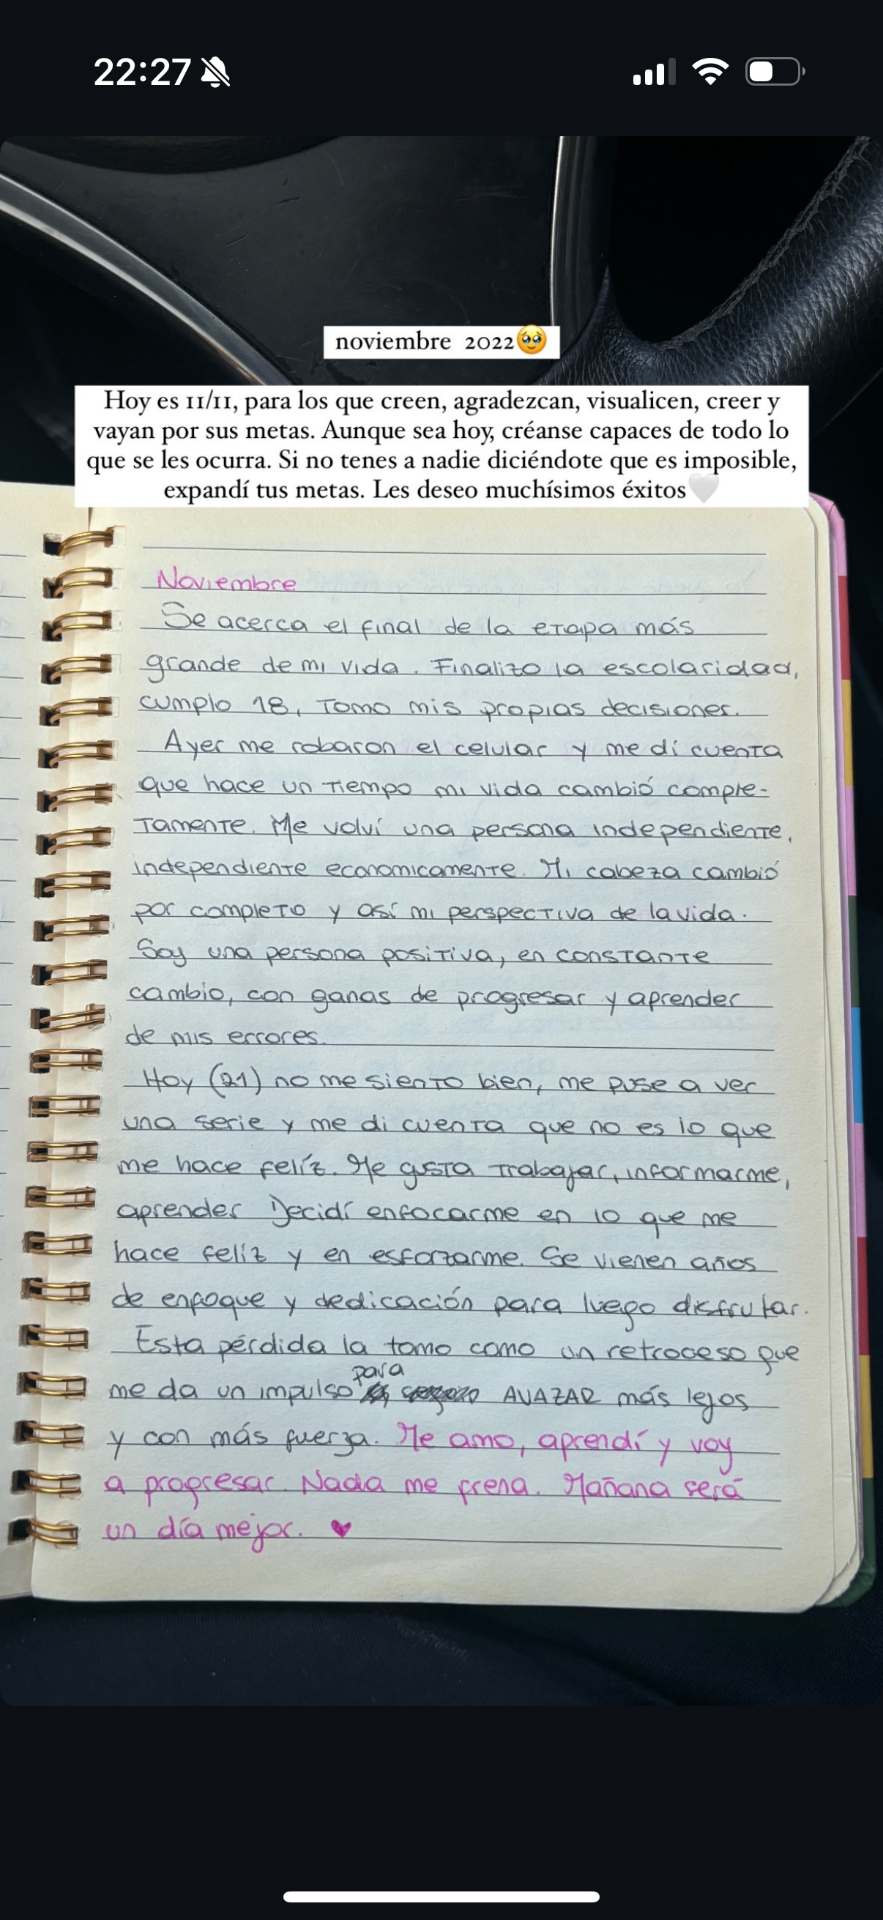 22:27
noviembre 2022🥹
Hoy es 11/11, para los que creen, agradezcan, visualicen, creer y
vayan por sus metas. Aunque sea hoy, créanse capaces de todo lo
que se les ocurra. Si no tenes a nadie diciéndote que es imposible,
expandí tus metas. Les deseo muchísimos éxitos🤍
Noviembre
Se acerca el final de la etapa más
grande de mi vida. Finalizo la escolaridad,
cumplo 18, Tomo mis propias decisiones.
Ayer me robaron el celular y me di cuenta
que hace un tiempo mi vida cambió comple-
tamente. Me volví una persona independiente,
independiente economicamente. Mi cabeza cambió
por completo y así mi perspectiva de la vida.
Soy una persona positiva, en constante
cambio, con ganas de progresar y aprender
de mis errores.
Hoy (21) no me siento bien, me puse a ver
una serie y me di cuenta que no es lo que
me hace felíz. Me gusta trabajar, informarme,
aprender Decidí enfocarme en lo que me
hace feliz y en esforzarme. Se vienen años
de enfoque y dedicación para luego disfrutar.
Esta pérdida la tomo como un retroceso que
me da un impulso para AVAZAR más lejos
y con más fuerza. Me amo, aprendí y voy
a progresar. Nada me frena. Mañana será
un día mejor. ♥